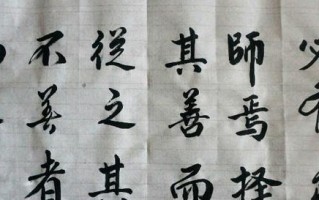 必有
師焉擇
其善而
從之其
不善者
而